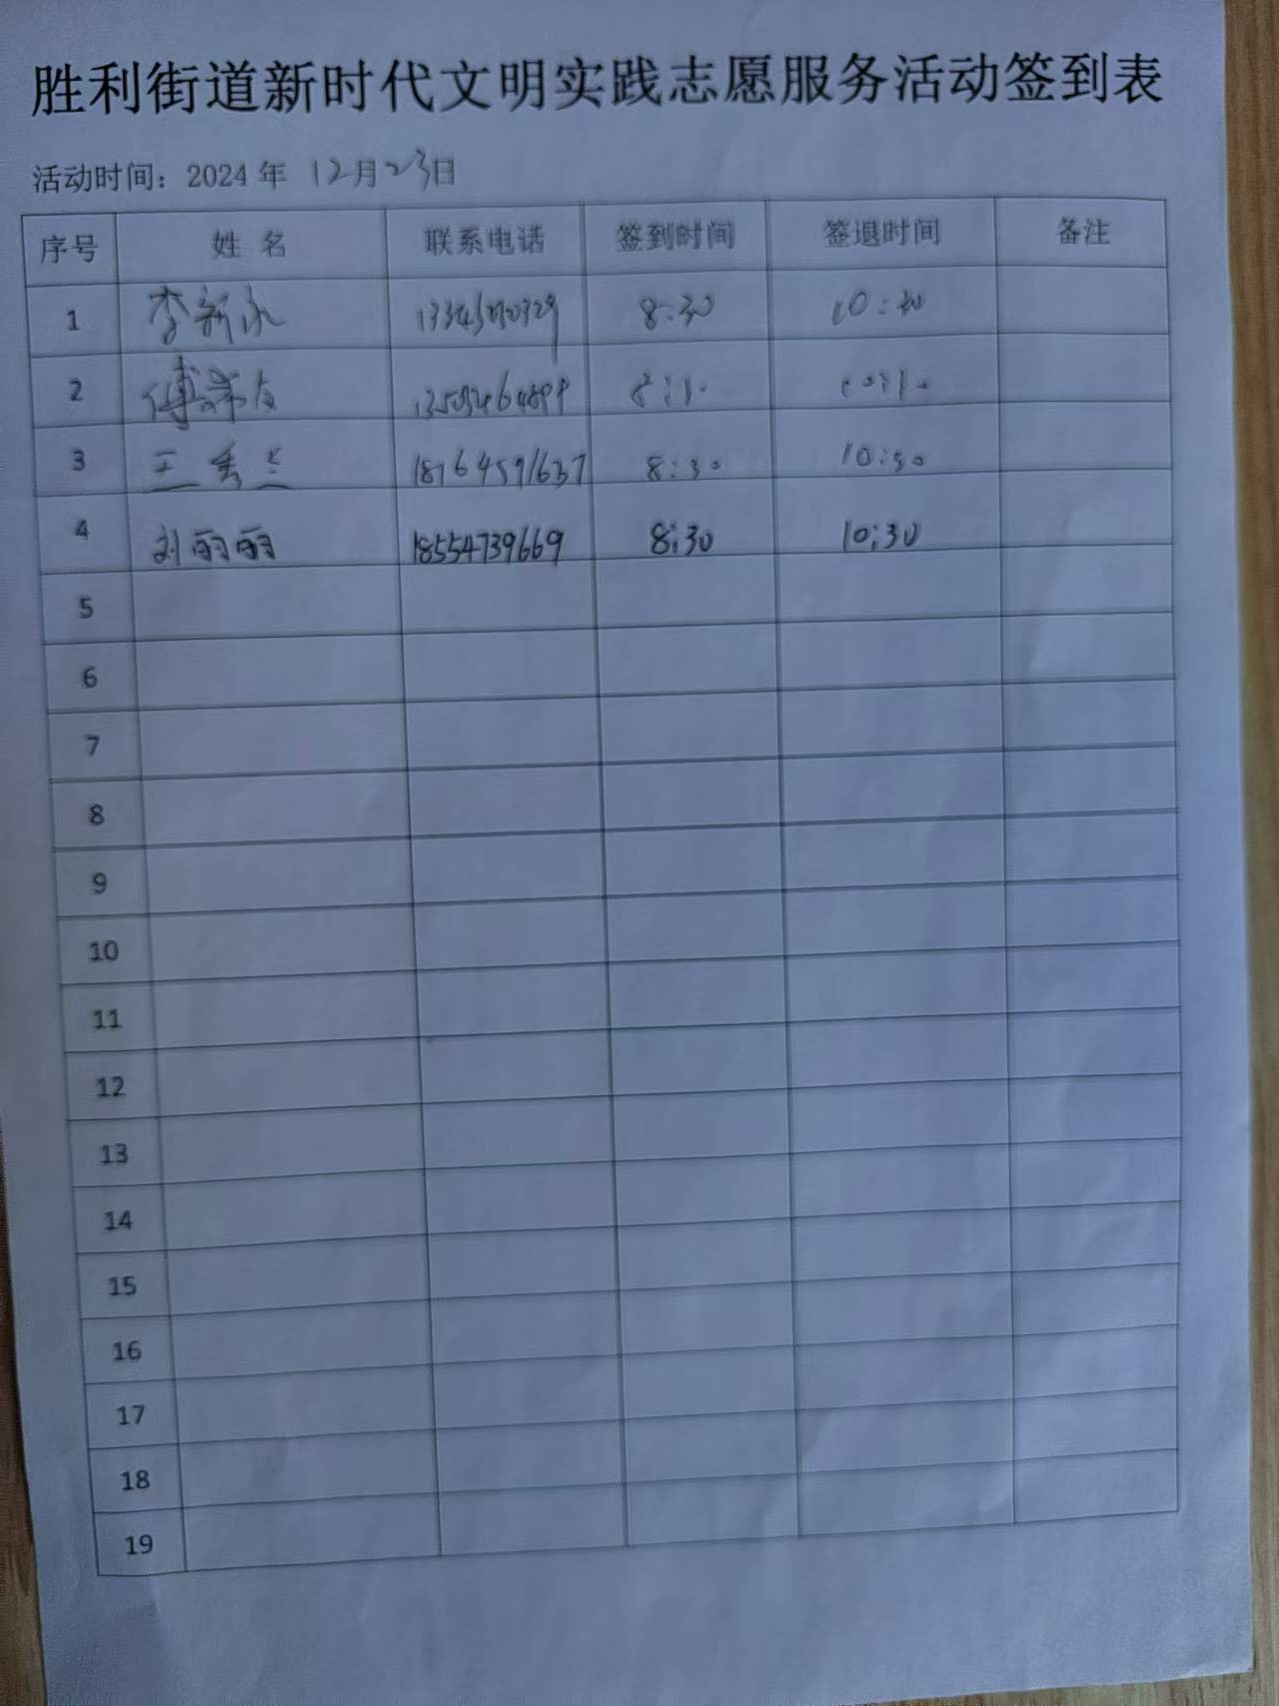 胜利街道新时代文明实践志愿服务活动签到表
活动时间：2024年 12月23日
序号 姓 名 联系电话 签到时间 签退时间 备注
1 李新永 8:30 10:30
2
3 王秀兰 18764591637 8:30 10:30
4 刘丽丽 18554739669 8:30 10:30
5
6
7
8
9
10
11
12
13
14
15
16
17
18
19